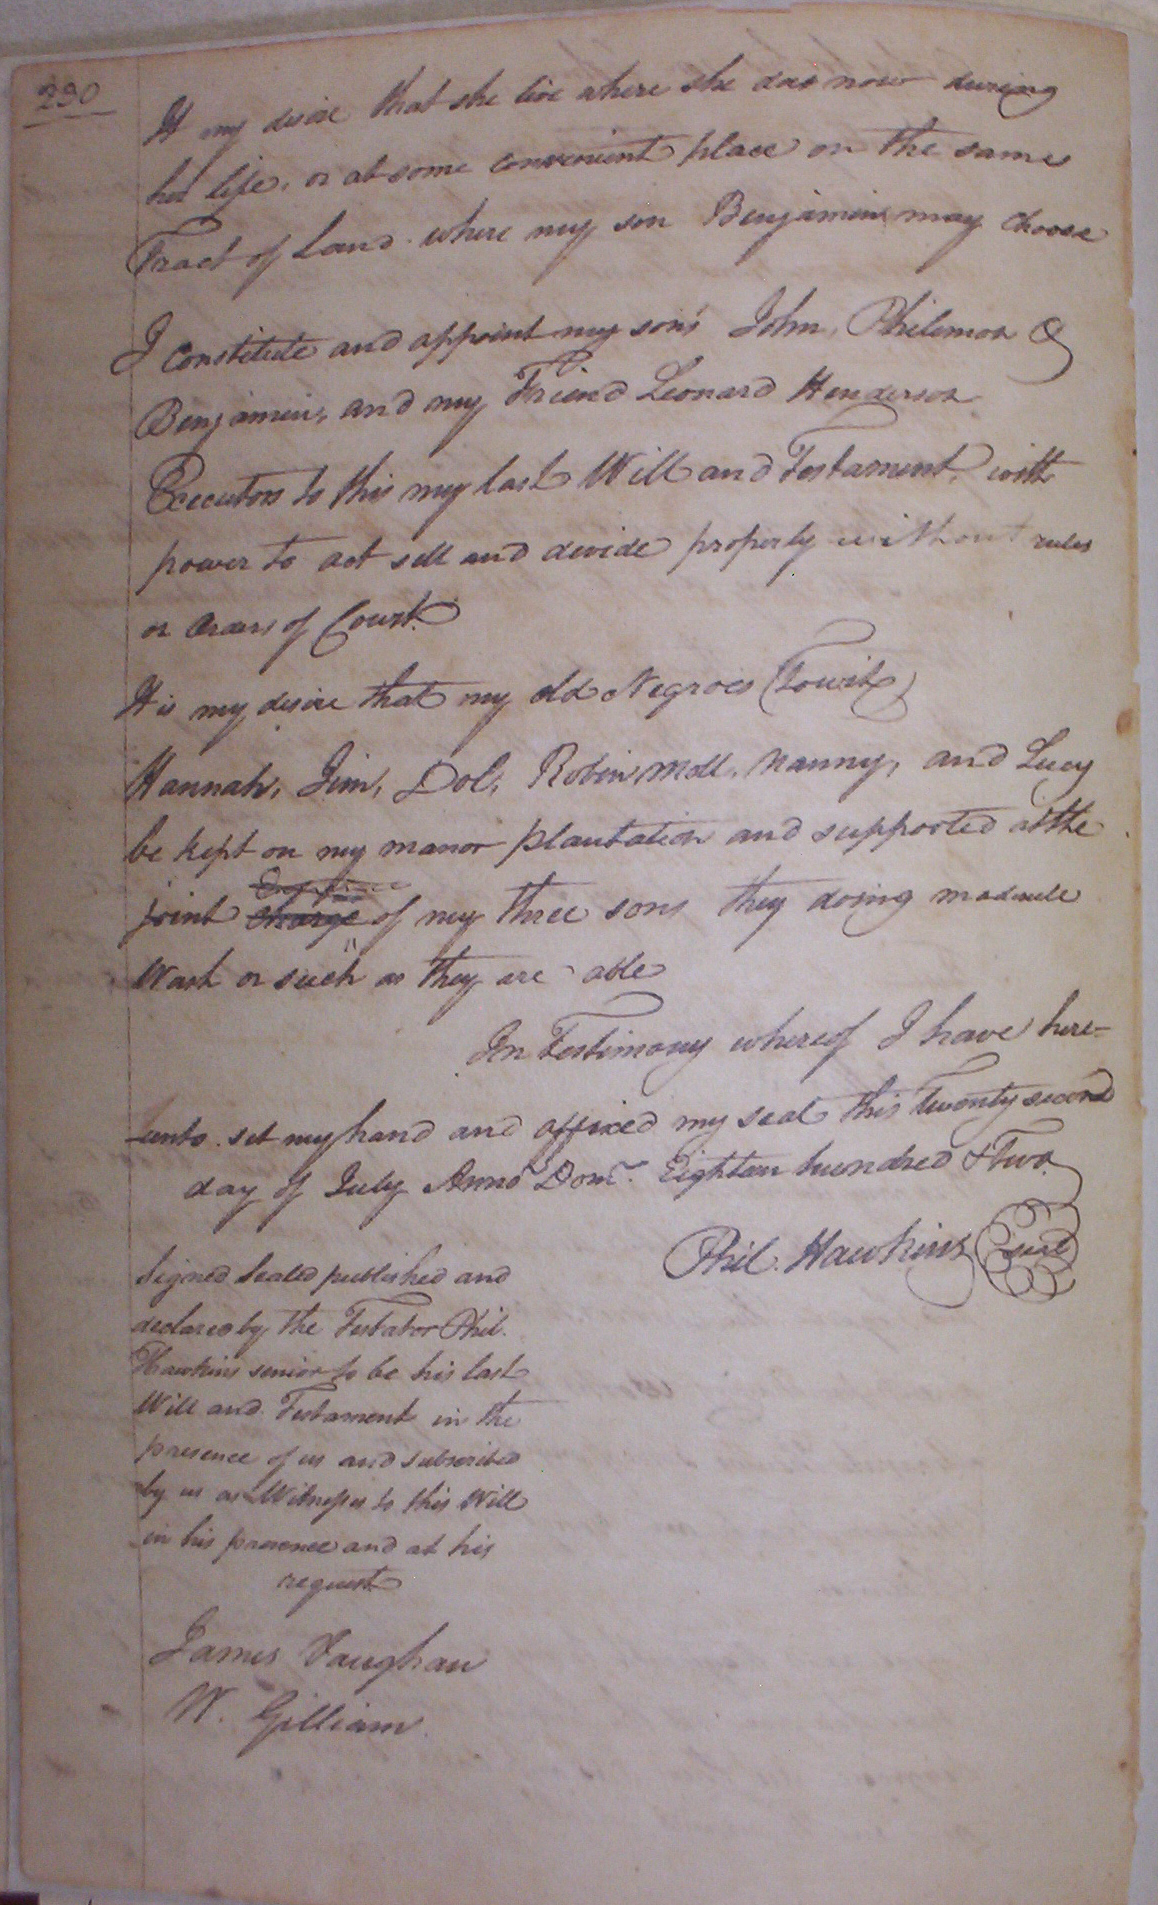 290
It my desire that she live where she does now during
her life, or at some convenient place on the same
Tract of Land where my son Benjamin may choose
I Constitute and appoint my sons John, Philemon &
Benjamin, and my Friend Leonard Henderson
Executors to this my last Will and Testament, with
power to act sell and divide property without rules
or Orders of Court.
It is my desire that my old Negroes (Towit)
Hannah, Jim, Dol, Robin, Moll, Nanny, and Lucy
be kept on my manor plantation and supported at the
joint charge of my three sons they doing moderate
Work or such as they are able
In Testimony whereof I have here-
unto set my hand and affixed my seal this Twenty second
day of July Anno Dom. Eighteen hundred & Two.
Phil. Hawkins (seal)
Signed Sealed published and
declared by the Testator Phil.
Hawkins senior to be his last
Will and Testament in the
presence of us and subscribed
by us as Witnesses to this Will
in his presence and at his
request
James Vaughan
W. Gilliam